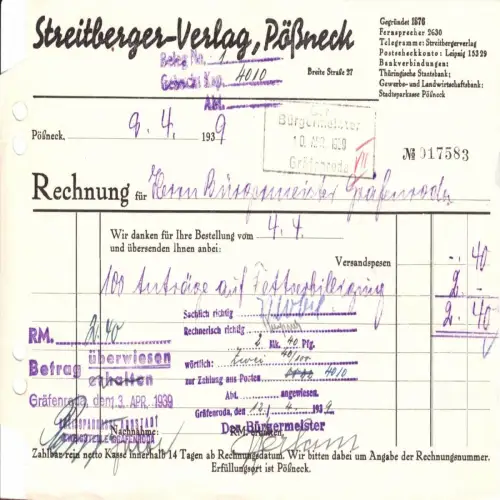 Streitberger-Verlag, Pößneck
Gegründet 1876
Fernsprecher 2630
Telegramme: Streitbergerverlag
Postscheckkonto: Leipzig 15329
Bankverbindungen:
Thüringische Staatsbank;
Gewerbe- und Landwirtschaftsbank;
Stadtsparkasse Pößneck
Beleg Nr. 1
Gebucht Kap. 4010
Abt.
Breite Straße 27
Pößneck, 6. 4. 1939
Der
Bürgermeister
10. APR. 1939
Gräfenroda
VII
№ 017583
Rechnung für Herrn Bürgermeister Gräfenroda
Wir danken für Ihre Bestellung vom 4. 4.
und übersenden Ihnen anbei:
Versandspesen -. 40
100 Anträge auf Fettverbilligung 2. -
2. 40
Sachlich richtig
Rechnerisch richtig
2 Rk. 40 Pfg.
wörtlich: Zwei 40/100
zur Zahlung aus Posten 4010
Abt. angewiesen.
Gräfenroda, den 12. 4. 1939
Der Bürgermeister
RM. 2.40
Betrag überwiesen
erhalten
Gräfenroda, dem 3. APR. 1939
KREISSPARKASSE ARNSTADT
ZWEIGSTELLE GRÄFENRODA
Nachnahme: RM. erhalten
Zahlbar rein netto Kasse innerhalb 14 Tagen ab Rechnungsdatum. Wir bitten dabei um Angabe der Rechnungsnummer.
Erfüllungsort ist Pößneck.